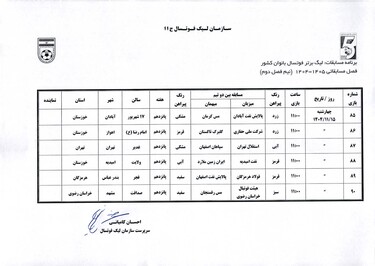 سازمان لیگ فوتسال ج ۱۱
برنامه مسابقات: لیگ برتر فوتسال بانوان کشور
فصل مسابقاتی ۱۴۰۵-۱۴۰۴ (نیم فصل دوم)
شماره بازی | روز / تاریخ | ساعت بازی | رنگ پیراهن | مسابقه بین دو تیم | میزبان | میهمان | رنگ پیراهن | هفته | سالن | شهر | استان | نماینده
۸۵ | چهارشنبه ۱۴۰۴/۱۱/۱۵ | ۱۱:۰۰ | زرد | پالایش نفت آبادان | مس کرمان | مشکی | پانزدهم | ۱۷ شهریور | آبادان | خوزستان
۸۶ | " | ۱۱:۰۰ | زرد | شرکت ملی حفاری | قرمز | پانزدهم | امام رضا (ع) | اهواز | خوزستان
۸۷ | " | ۱۱:۰۰ | آبی | استقلال تهران | سپاهان اصفهان | مشکی | پانزدهم | تهران | تهران
۸۸ | " | ۱۱:۰۰ | نفت امیدیه | ایران زمین ملارد | آبی | پانزدهم | ولایت | امیدیه | خوزستان
۸۹ | " | ۱۱:۰۰ | قرمز | فولاد هرمزگان | پالایش نفت اصفهان | سفید | پانزدهم | فجر | بندر عباس | هرمزگان
۹۰ | " | ۱۱:۰۰ | سبز | هیئت فوتبال خراسان رضوی | مس رفسنجان | سفید | پانزدهم | صداقت | مشهد | خراسان رضوی
سرپرست سازمان لیگ فوتسال